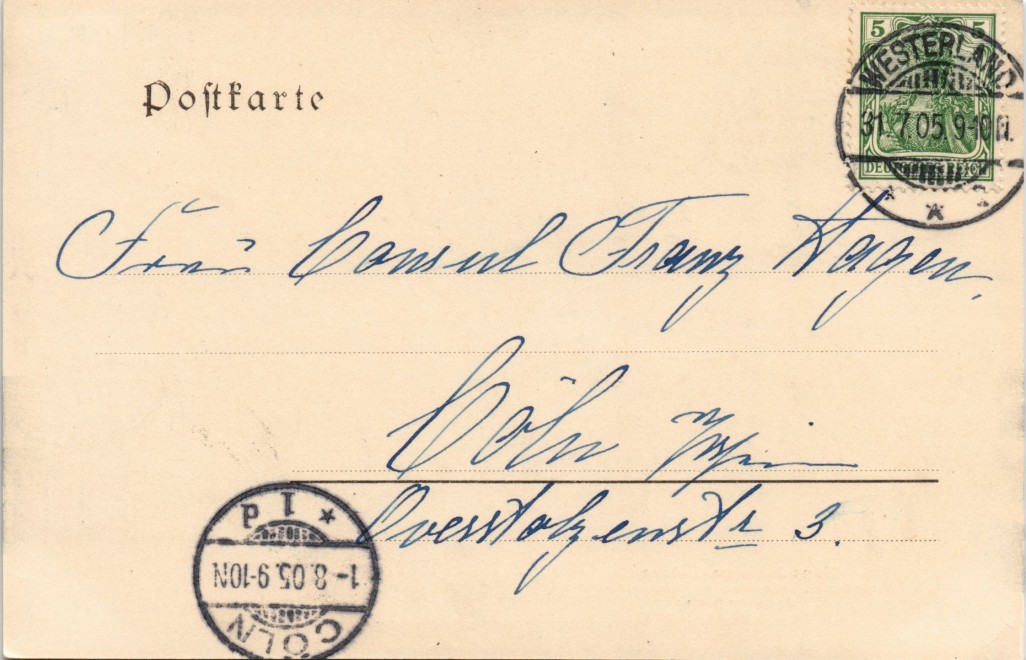 Postkarte
5 5
DEUTSCHES REICH
WESTERLAND
31.7.05.9-10N.
Frau Consul Franz Hagen,
Cöln
Overstolzenstr 3.
1-8.05.9-10N
CÖLN